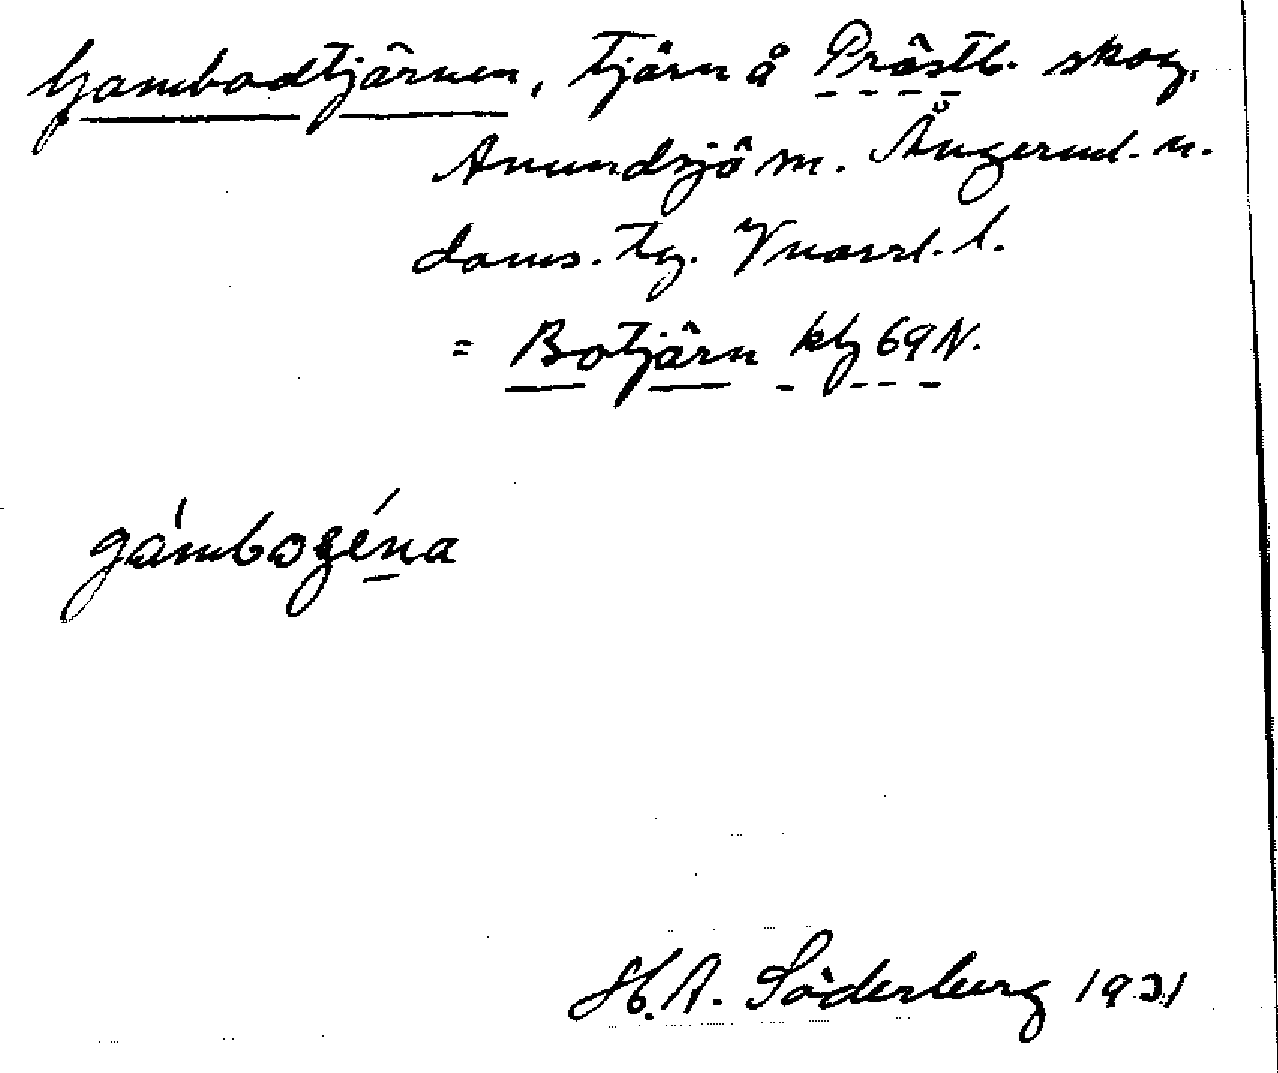 Gambodtjärnen, tjärn å Prästb. skog,
Anundsjö sn. Ångerml. n.
doms. tg. Vnorrl. l.
= Botjärn kbl 69 N.
gámbogéna
H. A. Söderberg 1931